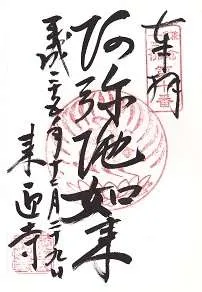 奉拝
阿弥陀如来
平成二十五年十二月二十九日
来迎寺